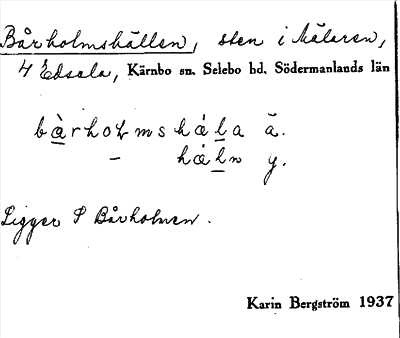 Bårholmshällen, sten i Mälaren,
4 Edsala, Kärnbo sn. Selebo hd. Södermanlands län
bàrholmshála ä.
– háln y.
Ligger S Bårholmen.
Karin Bergström 1937